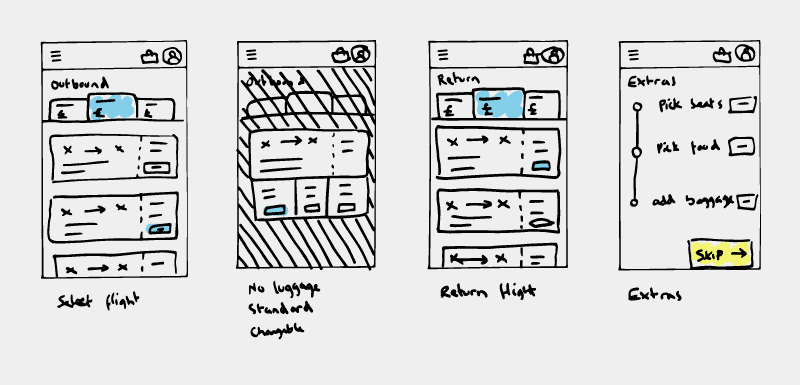 Outbound
£ £ £
Select flight
Outbound
No luggage
Standard
Changable
Return
£ £ £
Return flight
Extras
Pick seats
Pick food
add baggage
SKIP →
Extras